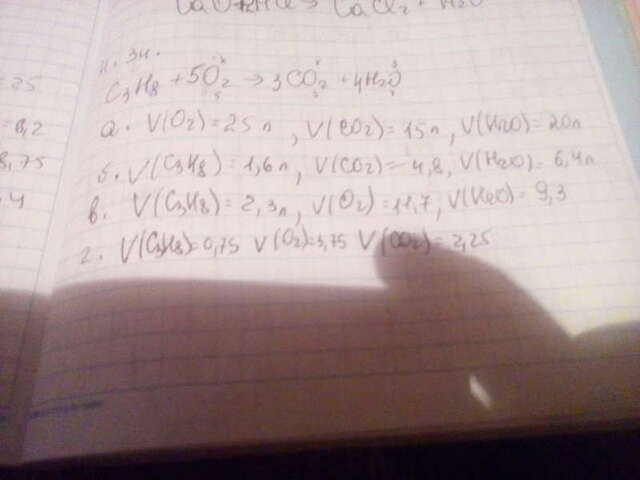 CaCl₂ + H₂O
= 25
= 8,2
8,75
,4
н. 34.
C₃H₈ + 5O₂ → 3CO₂ + 4H₂O
а. V(O₂) = 25 л , V(CO₂) = 15 л , V(H₂O) = 20 л
б. V(C₃H₈) = 1,6 л , V(CO₂) = 4,8 , V(H₂O) = 6,4 л
в. V(C₃H₈) = 2,3 л , V(O₂) = 11,7 , V(H₂O) = 9,3
г. V(C₃H₈) = 0,75 V(O₂) = 3,75 V(CO₂) = 2,25